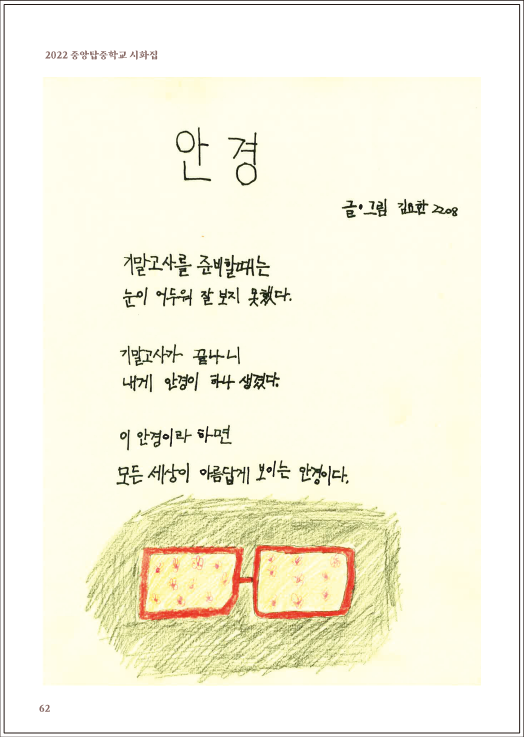 2022 중앙탑중학교 시화집
안경
글·그림 김요한 2208
기말고사를 준비할때는
눈이 어두워 잘 보지 못했다.
기말고사가 끝나니
내게 안경이 하나 생겼다.
이 안경이라 하면
모든 세상이 아름답게 보이는 안경이다.
62